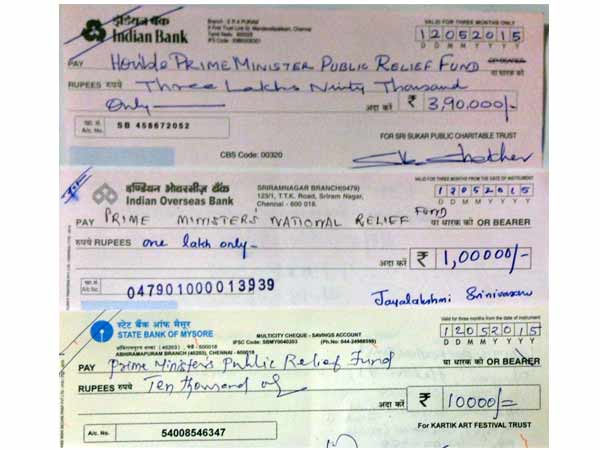 इंडियन बैंक
Indian Bank
Chennai
VALID FOR THREE MONTHS ONLY
12052015
D D M M Y Y Y Y
PAY Hon'ble PRIME MINISTER PUBLIC RELIEF FUND या धारक को
RUPEES रुपये Three Lakhs Ninty Thousand
Only अदा करें ₹ 3,90,000/-
खा. सं.
A/c No. SB 456672052
FOR SRI SUKAR PUBLIC CHARITABLE TRUST
CBS Code: 00320
इण्डियन ओवरसीज़ बैंक
Indian Overseas Bank
SRIRAMNAGAR BRANCH(0479)
123/1, T.T.K. Road, Sriram Nagar,
Chennai - 600 018.
VALID FOR THREE MONTHS FROM THE DATE OF INSTRUMENT
12052015
D D M M Y Y Y Y
PAY PRIME MINISTERS' NATIONAL RELIEF FUND या धारक को OR BEARER
रुपये RUPEES one lakh only-
अदा करें ₹ 1,00000/-
खा.सं.
A/c No. 047901000013939
Jayalakshmi Srinivasan
स्टेट बैंक ऑफ मैसूर
STATE BANK OF MYSORE
MULTICITY CHEQUE - SAVINGS ACCOUNT
IFSC Code: SBMY0040203
ABHIRAMAPURAM BRANCH (40203), CHENNAI - 600018
Valid for three months from the date of instrument
12052015
D D M M Y Y Y Y
PAY Prime Minister's Public Relief Fund या धारक को OR BEARER
RUPEES रुपये Ten thousand only
अदा करें ₹ 10000/-
A/c No. 54008546347
For KARTIK ART FESTIVAL TRUST